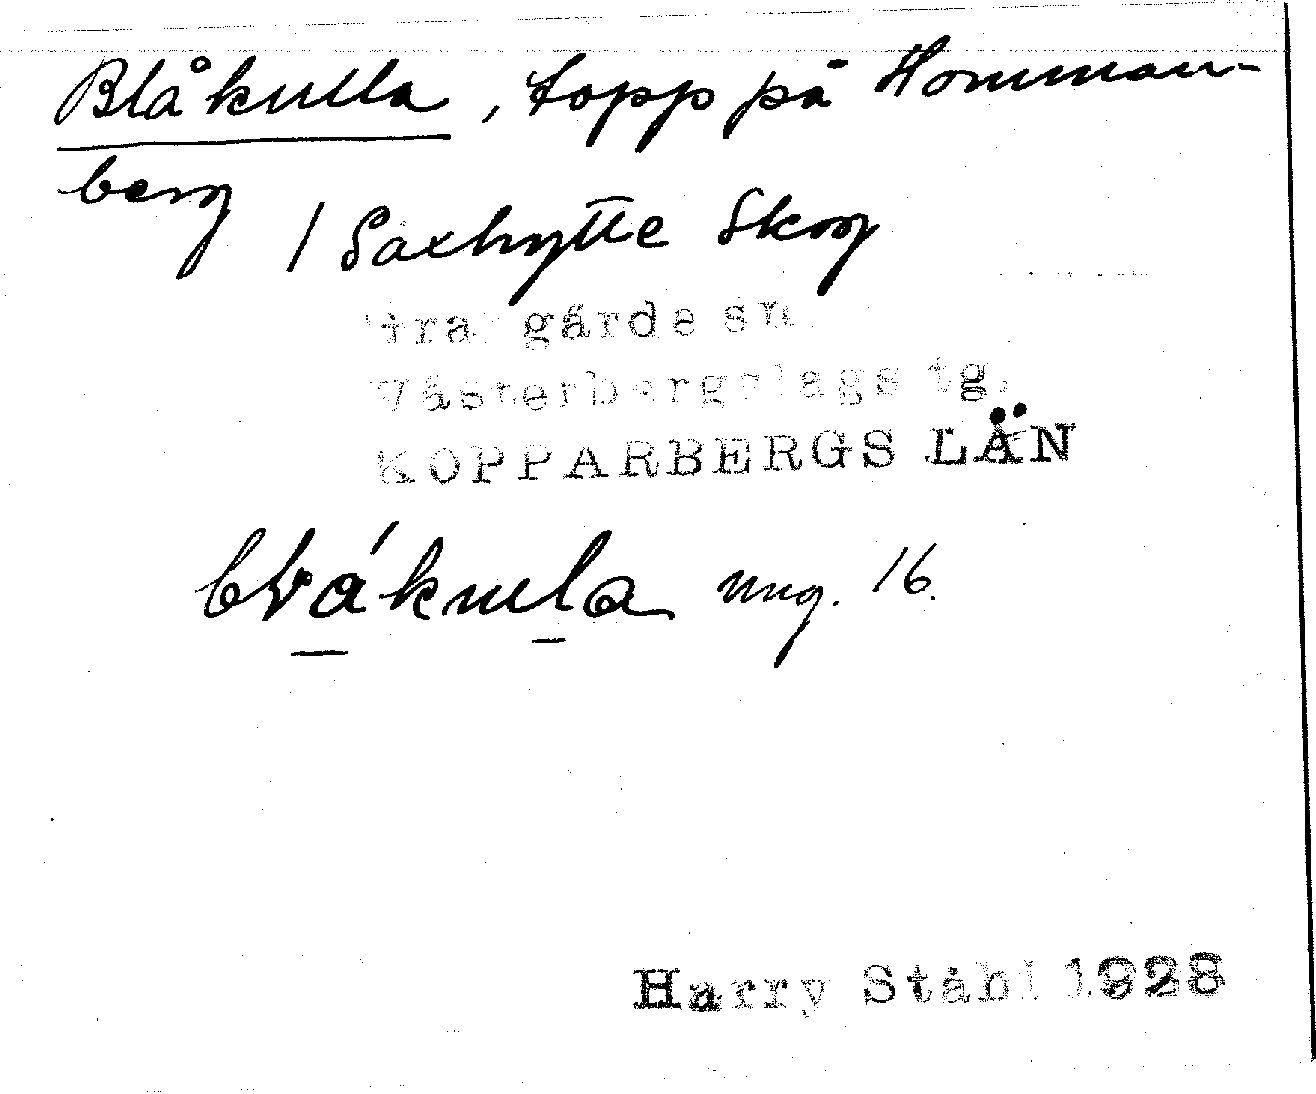 Blåkulla, topp på Homman-
berg / Saxhytte Skog
Grangärde sn.
Västerbergslags tg.
KOPPARBERGS LÄN
blákulla ung. 16.
Harry Ståhl 1928